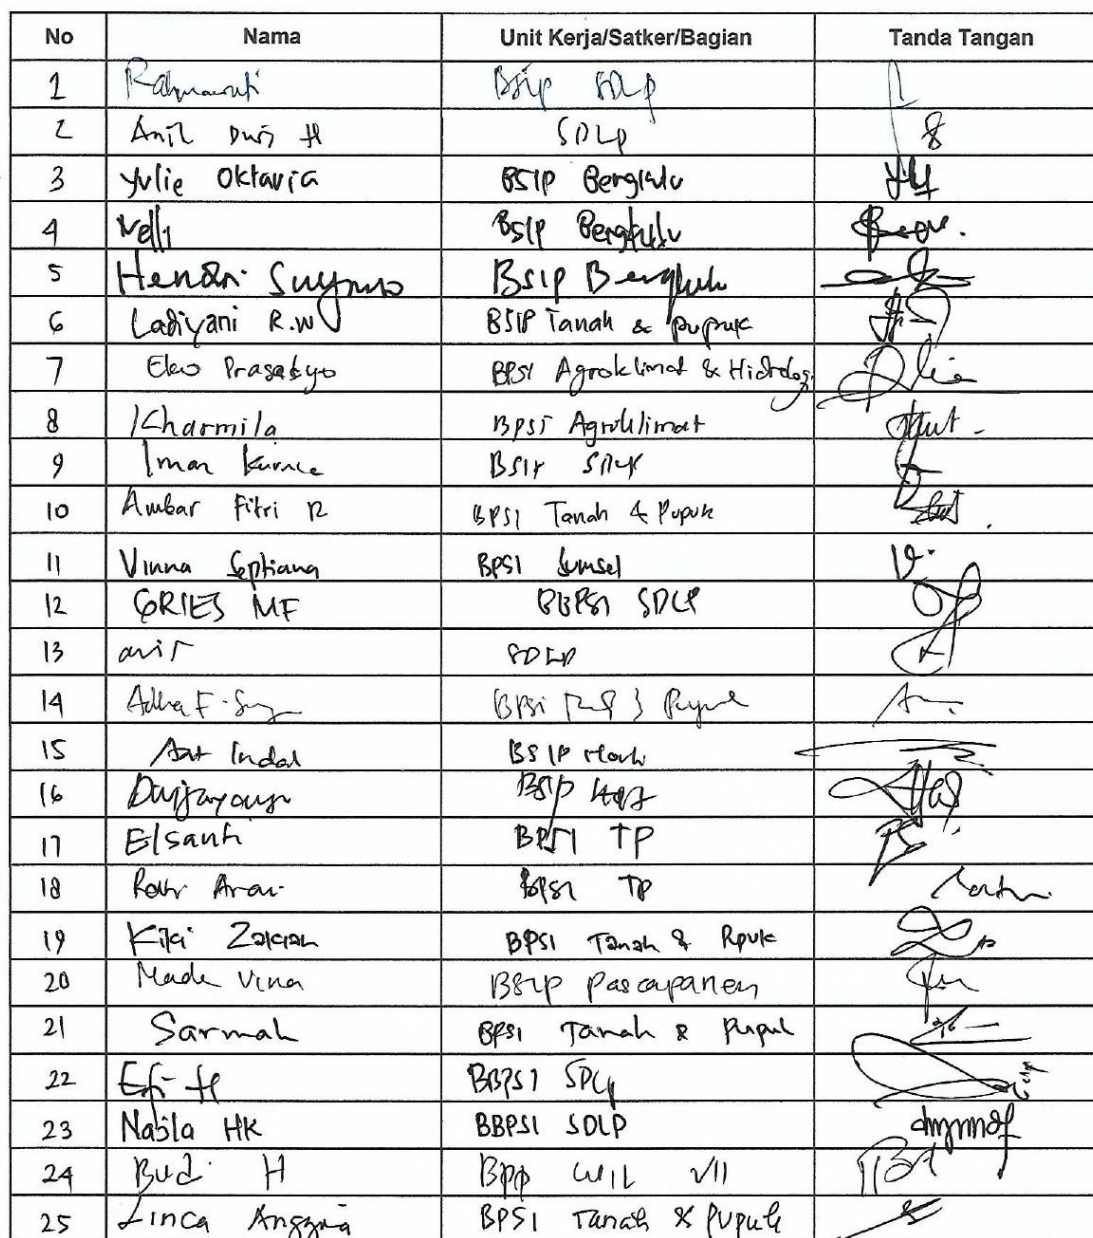 No Nama Unit Kerja/Satker/Bagian Tanda Tangan
1 Rahmawati BSIP SDLP
2 Anil H SDLP
3 Yulie Oktavia BSIP Bengkulu
4 Nelli BSIP Bengkulu
5 Hendri Suyono BSIP Bengkulu
6 Ladiyani R.W BSIP Tanah & Pupuk
7 Eko Prasetyo BPSI Agroklimat & Hidrologi
8 Kharmila BPSI Agroklimat
9 Iman Kurnia BSIP SDLP
10 Ambar Fitri R BPSI Tanah & Pupuk
11 Vinna Septiana BPSI Sumsel
12 QRIES MF BBPSI SDLP
13 SDLP
14 Adha F. BPSI Pupuk
15 Indal BSIP
16 BSIP
17 Elsanti BPSI TP
18 BPSI TP
19 Kiki Zakiah BPSI Tanah & Pupuk
20 Made Vina BSIP Pascapanen
21 Sarmah BPSI Tanah & Pupuk
22 Efi H BBPSI SDLP
23 Nabila HK BBPSI SDLP
24 Budi H BPP WIL VII
25 Linca Anggria BPSI Tanah & Pupuk